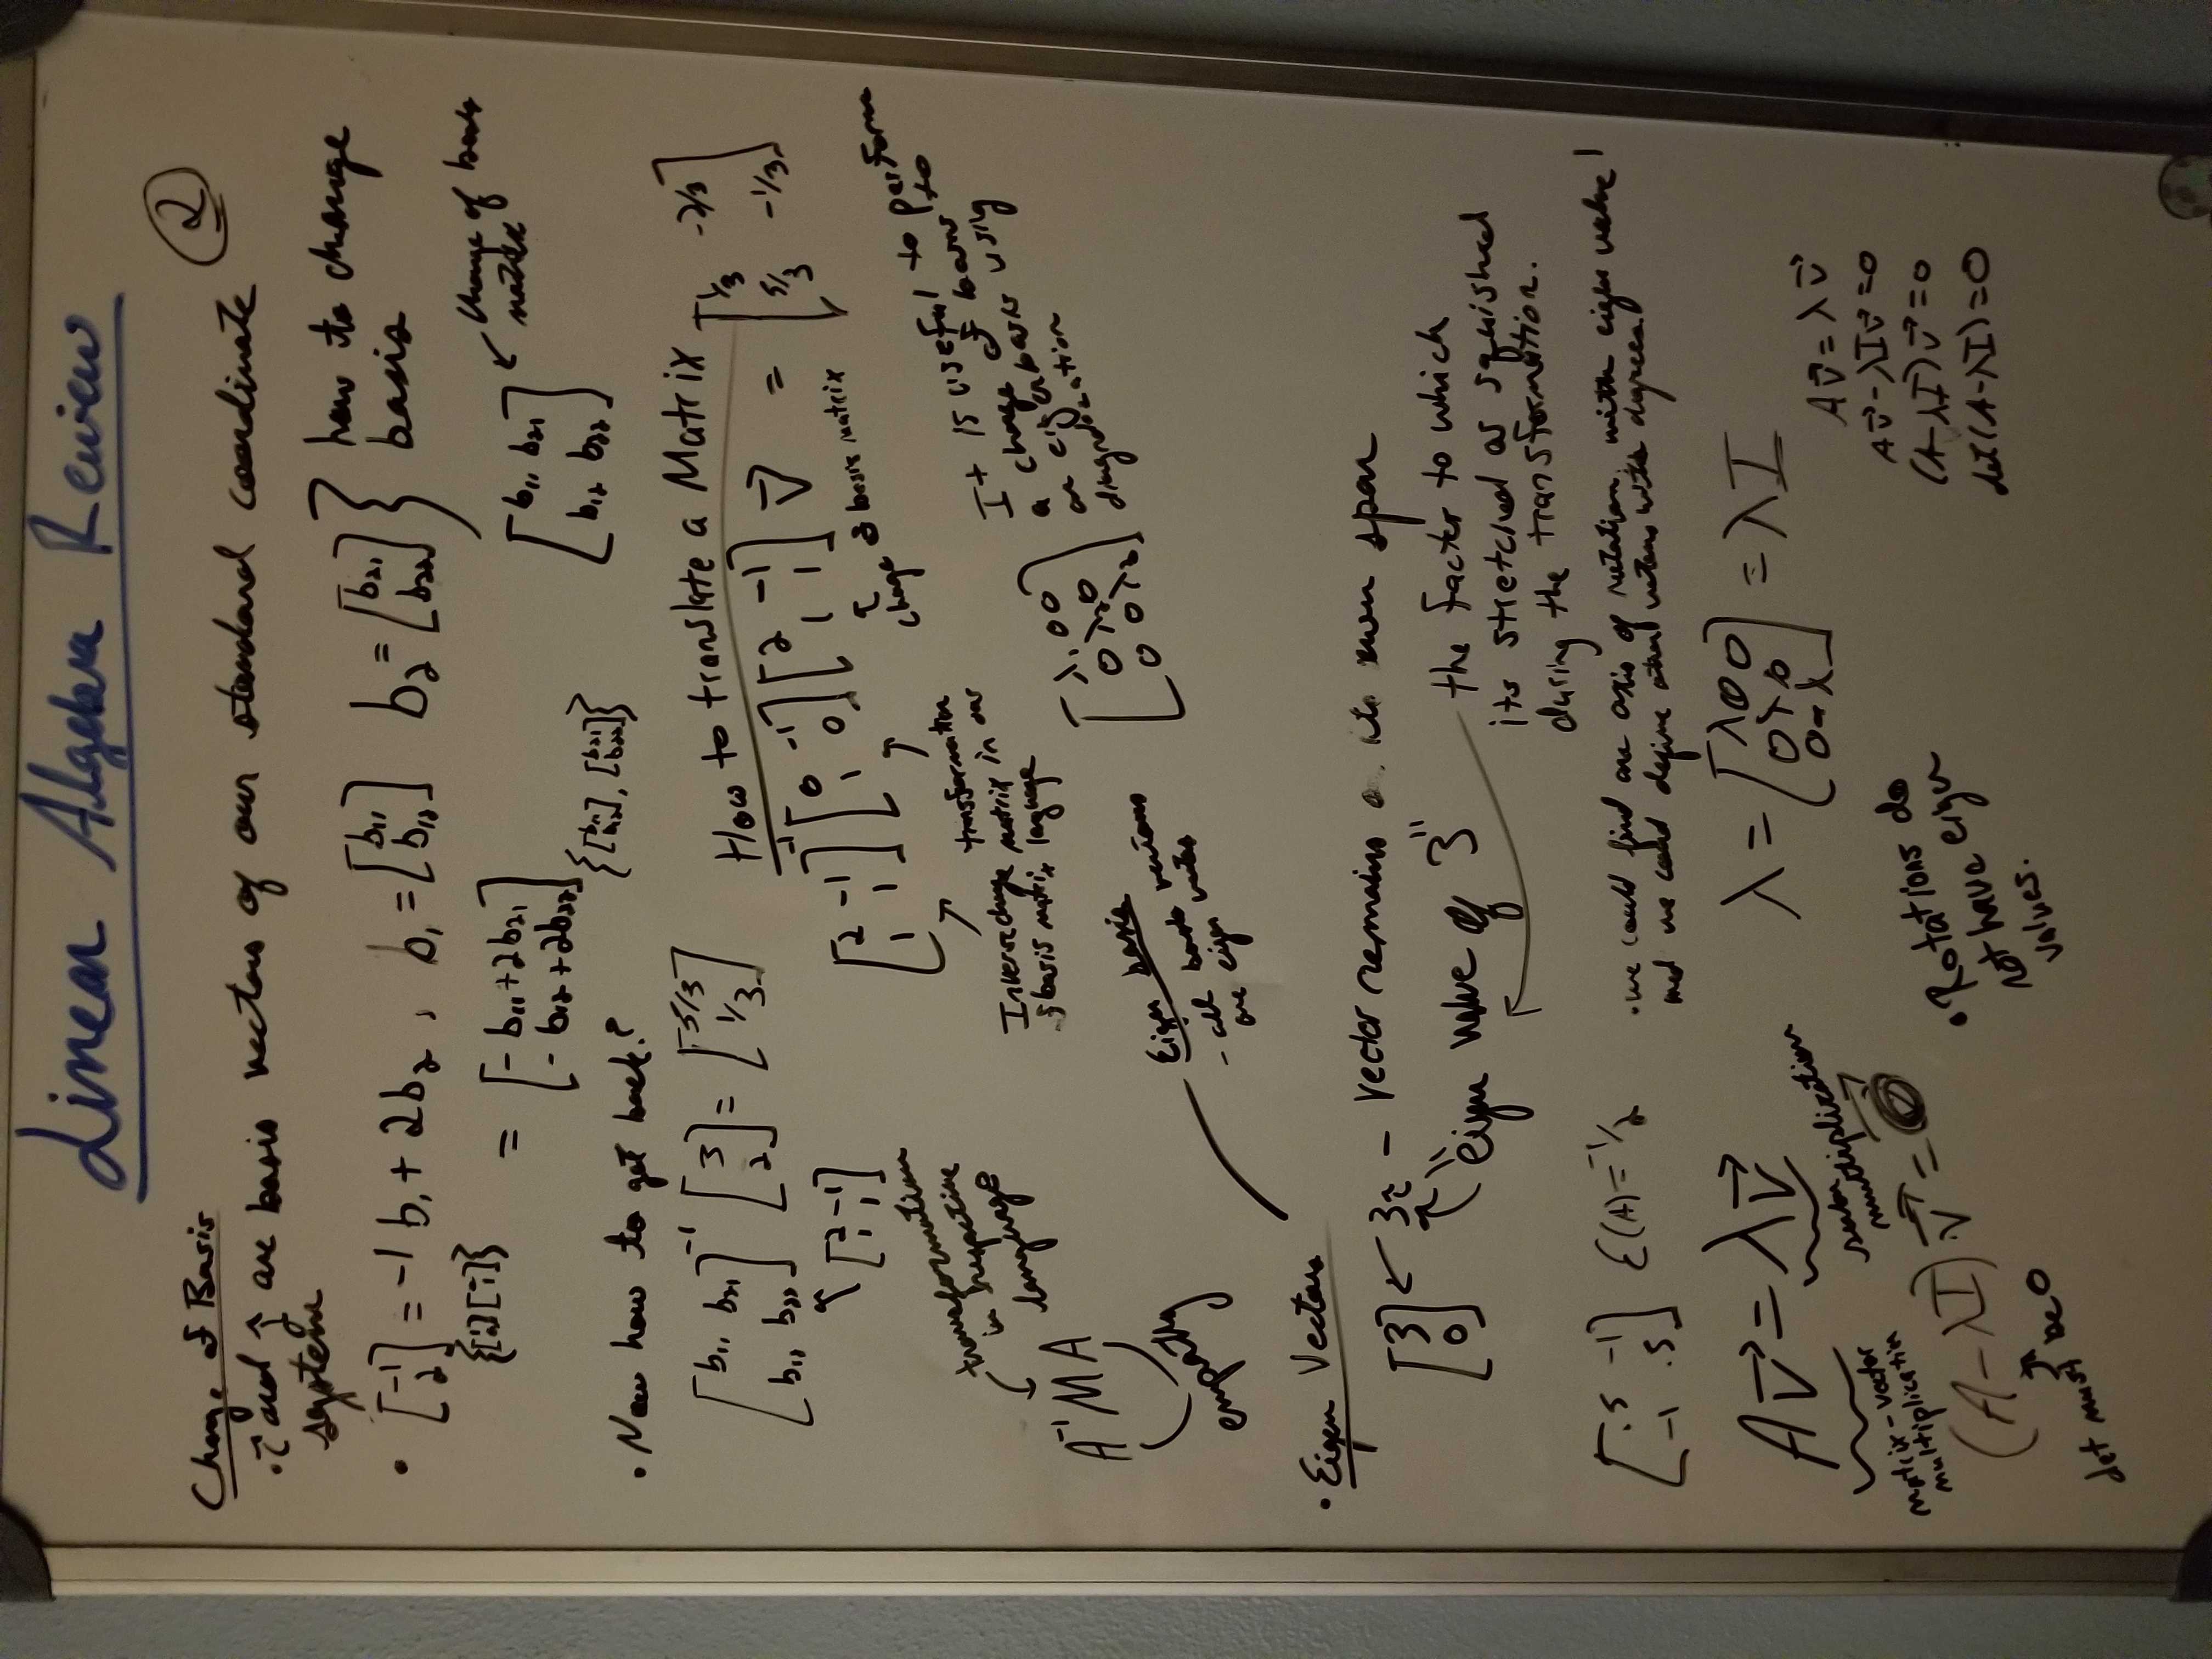 Linear Algebra Review
2
Change of Basis
• î and ĵ are basis vectors of our standard coordinate
system
• [-1 2] = -1 b₁ + 2b₂ , b₁ = [b₁₁ b₁₂] b₂ = [b₂₁ b₂₂] } how to change
basis
= [- b₁₁ + 2b₂₁
- b₁₂ + 2b₂₂]
{[b₁₁ b₁₂], [b₂₁ b₂₂]}
change of basis
matrix
[b₁₁ b₂₁
b₁₂ b₂₂]
• Now how to get back?
[b₁₁ b₂₁
b₁₂ b₂₂]⁻¹ [3 2] = [5/3 1/3]
[2 -1
1 1]
How to translate a Matrix
[2 -1
1 1]⁻¹ [0 -1
1 0] [2 -1
1 1] v⃗ = [1/3 -2/3
5/3 -1/3]
change of basis matrix
Inverse change
of basis matrix
transformation
matrix in our
language
transformation
in respective
language
A⁻¹MA
empathy
It is useful to perform
a change of basis to
an eigenbasis using
[λ₁ 0 0
0 λ₂ 0
0 0 λ₃]
Eigen basis
- all basis vectors
are eigen vectors
• Eigen Vectors
[3 0] ← 3î - Vector remains its own span
"eigen value of 3"
the factor to which
its stretched or squished
during the transformation.
[.5 -1
-1 .5] ε(A) = -1/2
• we could find axis of rotation with eigen value 1
and we could define other vectors with degrees.
Av⃗ = λv⃗
matrix-vector
multiplication
multiplication
λ = [λ 0 0
0 λ 0
0 0 λ] = λI
(A - λI) v⃗ = 0⃗
det must be 0
• Rotations do
not have eigen
values.
Av⃗ = λv⃗
Av⃗ - λIv⃗ = 0
(A - λI)v⃗ = 0
det(A - λI) = 0